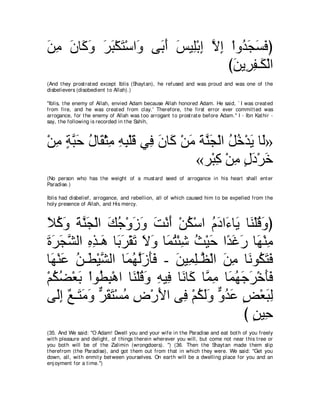 فَسَجَدُواْ إِلاَّ إِبْلِيسَ أَبَى وَاسْتَكْبَرَ وَكَانَ مِنَ
الْكَـفِرِينَ)
(And they prostrated except Iblis (Shaytan), he refused and was proud and was one of the
disbelievers (disobedient to Allah).)
"Iblis, the enemy of Allah, envied Adam because Allah honored Adam. He said, `I was created
from fire, and he was created from clay.' Therefore, the first error ever committed was
arrogance, for the enemy of Allah was too arrogant to prostrate before Adam.'' I - Ibn Kathir -
say, the following is recorded in the Sahih,
«لَا يَدْخُلُ الْجَنَّةَ مَنْ كَانَ فِي قَلْبِهِ مِثْقَالُ حَبَّةٍ مِنْ
خَرْدَلٍ مِنْ كِبْر»
(No person who has the weight of a mustard seed of arrogance in his heart shall enter
Paradise.)
Iblis had disbelief, arrogance, and rebellion, all of which caused him to be expelled from the
holy presence of Allah, and His mercy.
(وَقُلْنَا يَاءَادَمُ اسْكُنْ أَنْتَ وَزَوْجُكَ الْجَنَّةَ وَكُلاَ
مِنْهَا رَغَدًا حَيْثُ شِئْتُمَا وَلاَ تَقْرَبَا هَـذِهِ الشَّجَرَةَ
فَتَكُونَا مِنَ الظَّـلِمِينَ - فَأَزَلَّهُمَا الشَّيْطَـنُ عَنْهَا
فَأَخْرَجَهُمَا مِمَّا كَانَا فِيهِ وَقُلْنَا اهْبِطُواْ بَعْضُكُمْ
لِبَعْضٍ عَدُوٌّ وَلَكُمْ فِى الأَرْضِ مُسْتَقَرٌّ وَمَتَـعٌ إِلَى
حِينٍ )
(35. And We said: "O Adam! Dwell you and your wife in the Paradise and eat both of you freely
with pleasure and delight, of things therein wherever you will, but come not near this tree or
you both will be of the Zalimin (wrongdoers). '') (36. Then the Shaytan made them slip
therefrom (the Paradise), and got them out from that in which they were. We said: "Get you
down, all, with enmity between yourselves. On earth will be a dwelling place for you and an
enjoyment for a time.'')